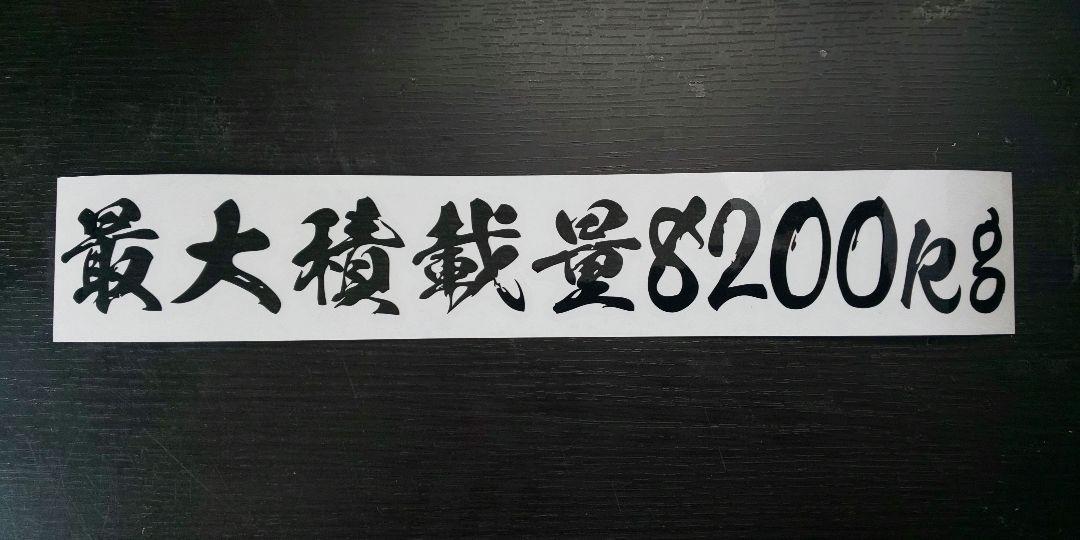 最大積載量8200kg